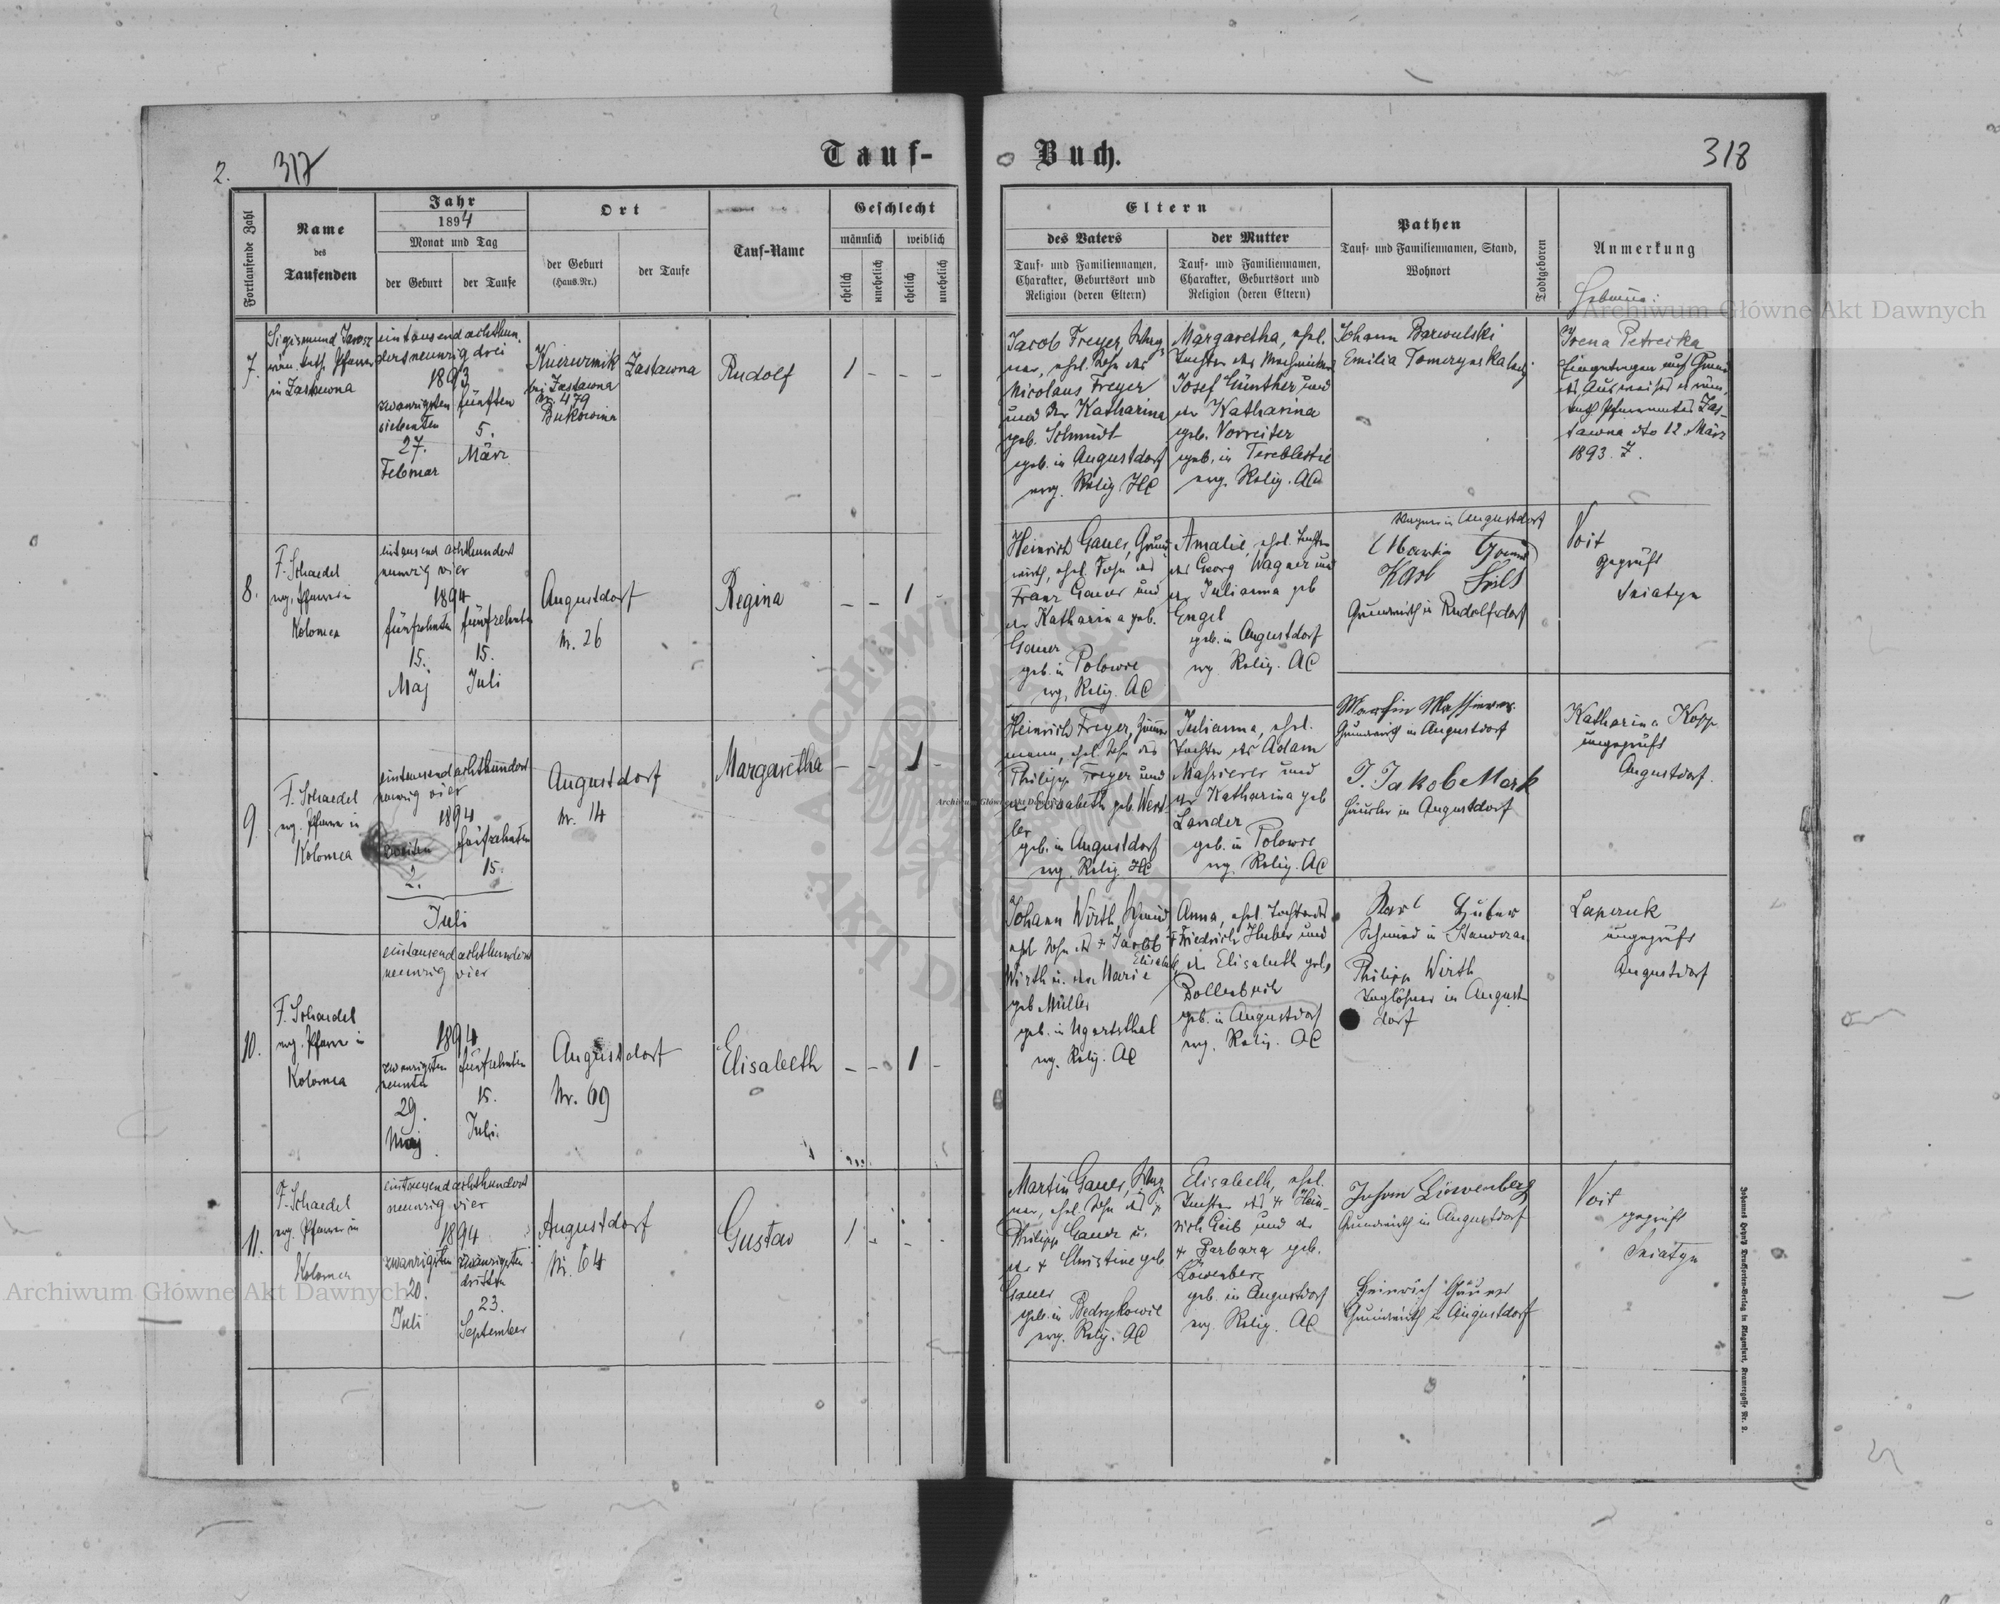 2.
317
Tauf-
Buch.
318
Fortlaufende Zahl
Name
des
Taufenden
Jahr
1894
Monat und Tag
der Geburt
der Taufe
Ort
der Geburt
(Haus-Nr.)
der Taufe
Tauf-Name
Geschlecht
männlich
weiblich
ehelich
unehelich
ehelich
unehelich
Eltern
des Vaters
Tauf- und Familiennamen,
Charakter, Geburtsort und
Religion (deren Eltern)
der Mutter
Tauf- und Familiennamen,
Charakter, Geburtsort und
Religion (deren Eltern)
Pathen
Tauf- und Familiennamen, Stand,
Wohnort
Todtgeboren
Anmerkung
7.
Sigismund Jarosz
röm. kath. Pfarrer
in Zastawna
eintausend achthun-
dertneunzig drei
1893
zwanzigsten
siebenten
27.
Februar
fünften
5.
März
bei Zastawna
Nr. 479
Bukowina
Zastawna
Rudolf
1 - - -
Jacob Freyer,
ner, ehel. Sohn des
Nicolaus Freyer
und der Katharina
geb. Schmidt
geb. in Augustdorf
evg. Relig. HC
Margaretha, ehel.
Tochter des
Josef Günther und
der Katharina
geb. Vorreiter
geb. in Tereblestie
evg. Relig. AC
Johann Barwulski
Emilia
Hebamme:
Irena Petreika
Eingetragen auf Grund
des Ausweises des röm.
kath. Pfarramtes Zas-
tawna dto 12. März
1893.
8.
F. Schaedel
evg. Pfarrer in
Kolomea
eintausend achthundert
neunzig vier
1894
fünfzehnten
15.
Maj
fünfzehnten
15.
Juli
Augustdorf
Nr. 26
Regina
- - 1 -
Heinrich Gauer, Grund
wirth, ehel. Sohn des
Franz Gauer und
der Katharina geb.
Gauer
geb. in Polowce
evg. Relig. AC
Amalie, ehel. Tochter
des Georg Wagner und
der Julianna geb
Engel
geb. in Augustdorf
evg. Relig. AC
Wagner in Augustdorf
Martin
Karl
Grundwirth in Rudolfsdorf
Voit
geprüft
Sniatyn
9.
F. Schaedel
evg. Pfarrer in
Kolomea
eintausend achthundert
neunzig vier
1894
zweiten
2.
fünfzehnten
15.
Juli
Augustdorf
Nr. 14
Margaretha
- - 1 -
Heinrich Freyer, Zimmer
mann, ehel. Sohn des
Philipp Freyer und
der Elisabeth geb.
geb. in Augustdorf
evg. Relig. HC
Julianna, ehel.
Tochter des Adam
Massierer und
der Katharina geb
Lander
geb. in Polowce
evg. Relig. AC
Martin Massierer
Grundwirth in Augustdorf
J. Jakob Mark
Häusler in Augustdorf
Katharina Kopp
ungeprüft
Augustdorf.
10.
F. Schaedel
evg. Pfarrer in
Kolomea
eintausend achthundert
neunzig vier
1894
zwanzigsten
neunten
29.
Maj
fünfzehnten
15.
Juli
Augustdorf
Nr. 69
Elisabeth
- - 1 -
Johann Wirth, Schmied
ehel. Sohn des + Jacob
Elisabeth
Wirth u. der Marie
geb. Müller
geb. in Ugartsthal
evg. Relig. AC
Anna, ehel. Tochter des
+ Friedrich Huber und
der Elisabeth geb.
Bollenbach
geb. in Augustdorf
evg. Relig. AC
Karl Huber
Schmied in
Philipp Wirth
Taglöhner in August
dorf
ungeprüft
Augustdorf
11.
F. Schaedel
evg. Pfarrer in
Kolomea
eintausend achthundert
neunzig vier
1894
zwanzigsten
20.
Juli
zwanzigsten
dritten
23.
September
Augustdorf
Nr. 64
Gustav
1 - - -
Martin Gauer,
ner, ehel. Sohn des +
Philipp Gauer u.
der + Christine geb
Gauer
geb. in Bedrykowce
evg. Relig. AC
Elisabeth, ehel.
Tochter des + Hein-
rich Geib und der
+ Barbara geb.
Löwenberg
geb. in Augustdorf
evg. Relig. AC
Johan Löwenberg
Grundwirth in Augustdorf
Heinrich Gauer
Grundwirth in Augustdorf
Voit
geprüft
Sniatyn
Archiwum Główne Akt Dawnych
Archiwum Główne Akt Dawnych
Archiwum Główne Akt Dawnych